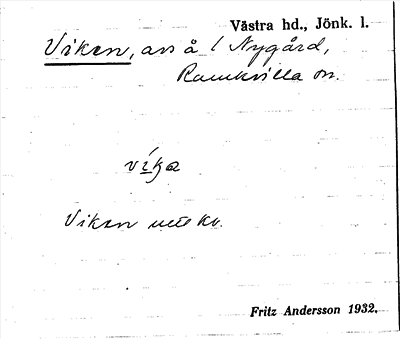 Västra hd., Jönk. l.
Viken, avs å 1 Nygård,
Ramkvilla sn.
víka
Viken
Fritz Andersson 1932.